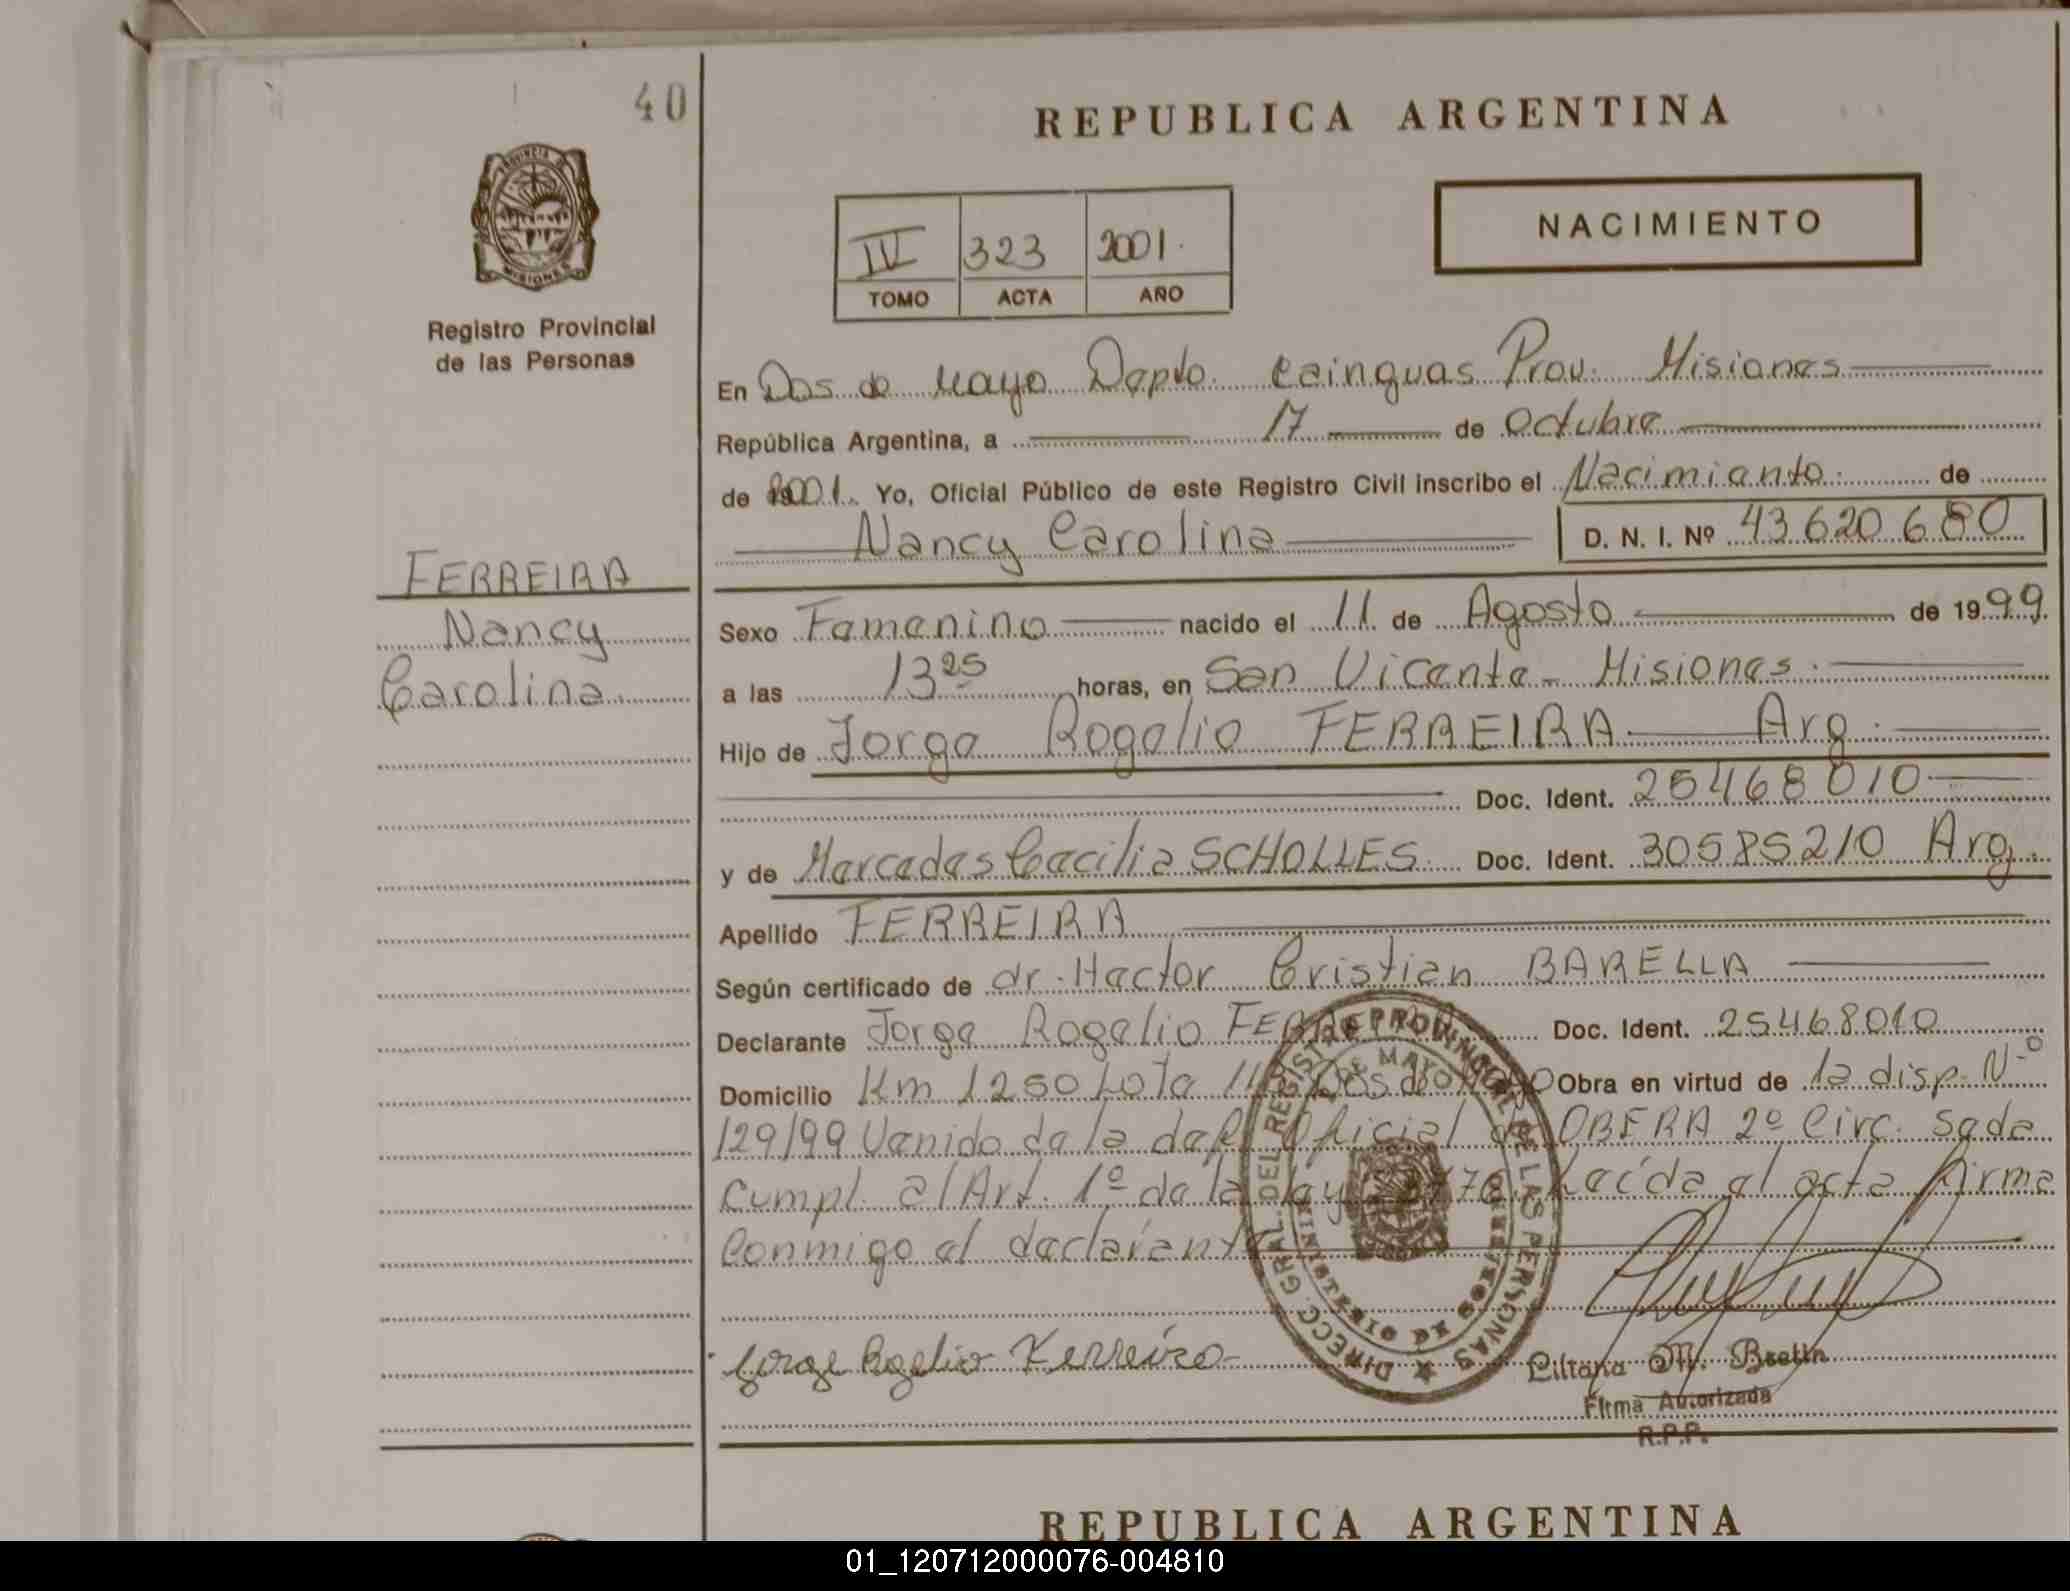 40
REPUBLICA ARGENTINA
PROVINCIA DE
MISIONES
Registro Provincial
de las Personas
IV 323 2001.
TOMO ACTA AÑO
NACIMIENTO
En Dos de Mayo Depto. Cainguas Prov. Misiones
República Argentina, a 17 de Octubre
de 2001. Yo, Oficial Público de este Registro Civil inscribo el Nacimiento. de
Nancy Carolina D. N. I. Nº 43 620 680
FERREIRA
Nancy
Carolina
Sexo Femenino nacido el 11 de Agosto de 1999.
a las 13 25 horas, en San Vicente - Misiones.
Hijo de Jorge Rogelio FERREIRA Arg.
Doc. Ident. 25468010
y de Mercedes Cecilia SCHOLLES. Doc. Ident. 30585210 Arg.
Apellido FERREIRA
Según certificado de dr. Hector Cristian BARELLA
Declarante Jorge Rogelio Doc. Ident. 25468010
Domicilio Km 1250 Lote 11 Dos de Mayo Obra en virtud de la disp. Nº
129/99 Venido de la Oficial de OBERA 2º Circ. sede
Cumpl. al Art. 1º de la Ley Leída el acta firma
Conmigo el declarante
DIRECC. GRAL. DEL REGISTRO PROVINCIAL DE LAS PERSONAS
DE MAYO
MINISTERIO DE GOBIERNO
Jorge Rogelio Ferreira
Liliana M.
Firma Autorizada
R.P.P.
REPUBLICA ARGENTINA
01_120712000076-004810